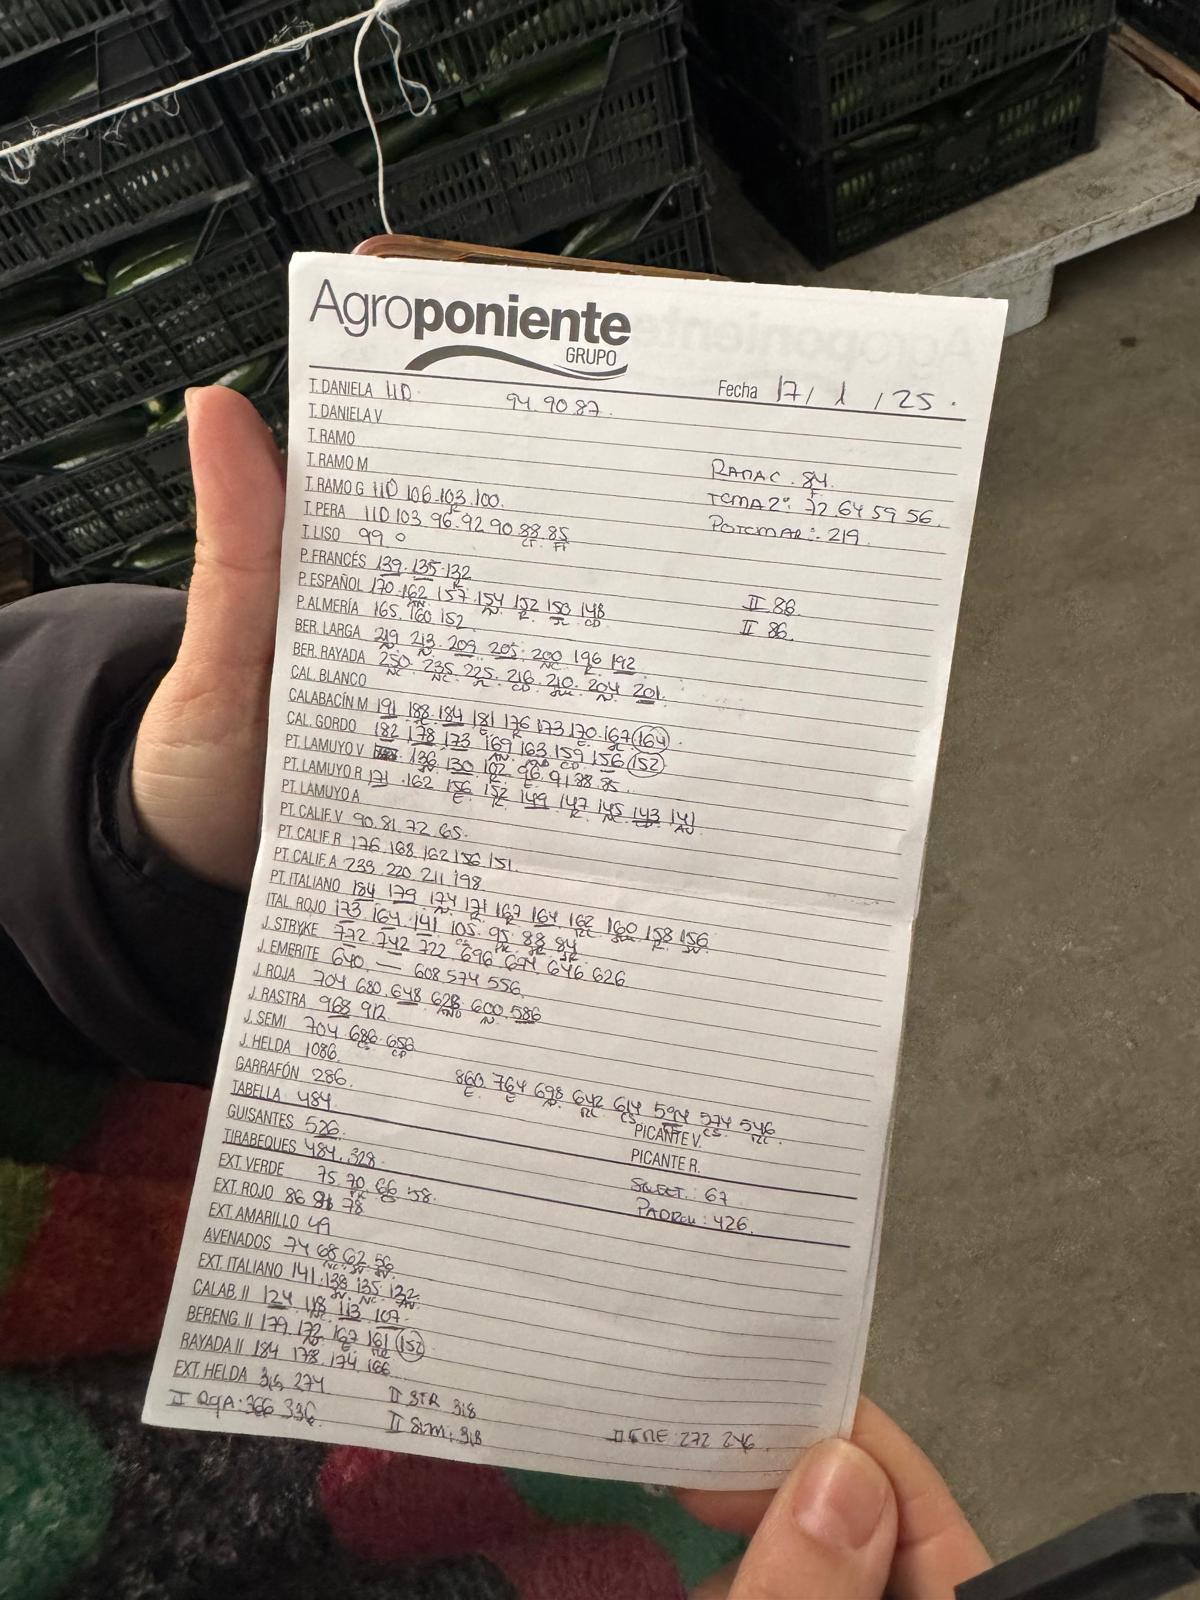 Agroponiente
GRUPO
Fecha 17/ 1 / 25.
T. DANELA 110. 94. 90 87.
T. DANIELA V
T. RAMO
RAMAC . 84.
T. RAMO M
TOMA2º: 72 64 59 56.
T. RAMO G 110 106.103.100.
POTOMAR: 219.
T. PERA 110 103 96. 92 90 88. 85
T. LISO 99
P. FRANCÉS 139. 135. 132
II 86
P. ESPAÑOL 170. 162 157. 154 152 150 148
II 86.
P. ALMERÍA 165. 160 152
BER. LARGA 219 213. 209 205. 200 196 192
BER. RAYADA 250. 235. 225. 216 210. 204 201.
CAL. BLANCO
CALABACÍN M 191 188. 184 181 176 173 170. 167 164.
CAL. GORDO 182 178 173 169 163. 159 156 152
PT. LAMUYO V 136 130 102 96. 91 88 85
PT. LAMUYO R 171 . 162 156 152 149 147 145 143 141
PT. LAMUYO A
PT. CALIF. V 90. 81. 72 65.
PT. CALIF. R 176. 168 162 156 151.
PT. CALIF. A 233 220 211 198
PT. ITALIANO 184 179 174 171 167 164 162 160 158 156
ITAL. ROJO 173. 164. 141 105. 95. 88 84
J. STRYKE 772. 742 722 696 674 646 626
J. EMERITE 640. — 608 574 556.
J. ROJA 704 680. 648 628. 600. 586
J. RASTRA 968 912
J. SEMI 704 686. 656
J. HELDA 1086. 860. 764 698 642 614 594 574 546
GARRAFÓN 286.
TABELLA 484. PICANTE V.
GUISANTES 526. PICANTE R.
TIRABEQUES 484. 328. SWEET: 67
EXT. VERDE 75. 70. 66. 58. PADRON: 426.
EXT. ROJO 86 81 78
EXT. AMARILLO 49
AVENADOS 74 68 62 56
EXT. ITALIANO 141. 138. 135. 132.
CALAB. II 124. 118 113 107.
BERENG. II 179. 172 167 161 152.
RAYADA II 184 178. 174 166
EXT. HELDA 316 274 II STR 318
II RqA: 366 336. II SEM: 318 II EME: 272 246.